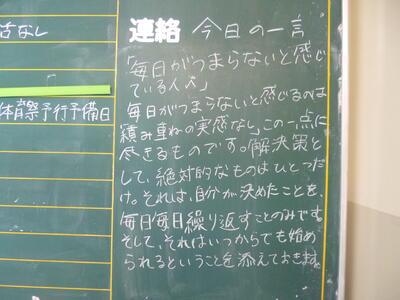 活なし
体育祭予行予備日
連絡 今日の一言
「毎日がつまらないと感じ
ている人へ」
毎日がつまらないと感じるのは
積み重ねの実感なし、この一点に
尽きるものです。解決策と
して、絶対的なものはひとつだ
け。それは、自分が決めたことを
毎日毎日繰り返すことのみです。
そして、それはいつからでも始め
られるということを添えておきます。